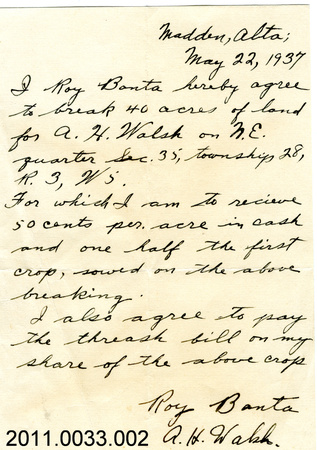 Madden, Alta;
May 22, 1937
I Roy Banta hereby agree
to break 40 acres of land
for A. H. Walsh on N.E.
quarter Sec. 35, township 28,
R. 3, W 5.
For which I am to recieve
50 cents per. acre in cash
and one half the first
crop, sowed on the above
breaking.
I also agree to pay
the threash bill on my
share of the above crop
Roy Banta
A. H. Walsh.
2011.0033.002